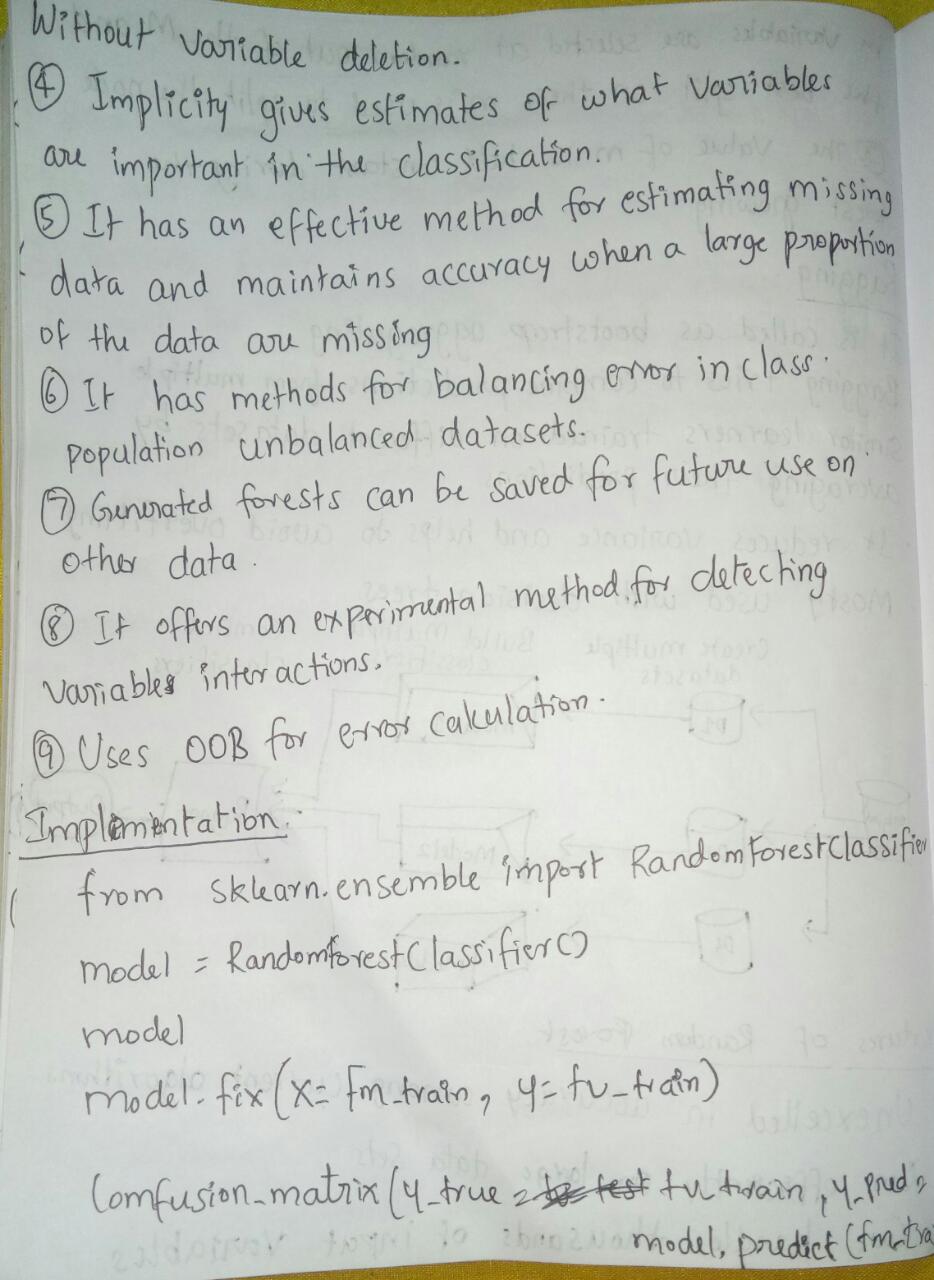 Without Variable deletion.
④ Implicity gives estimates of what variables
are important in the classification.
⑤ It has an effective method for estimating missing
data and maintains accuracy when a large proportion
of the data are missing
⑥ It has methods for balancing error in class
population unbalanced datasets.
⑦ Generated forests can be saved for future use on
other data.
⑧ It offers an experimental method for detecting
Variables interactions.
⑨ Uses OOB for error calculation.
Implementation:
from sklearn.ensemble import RandomForestClassifier
model = RandomforestClassifier()
model
model.fix(x= fm_train, y= tv_train)
Comfusion_matrix (y_true = tv train, y_pred =
model, predict (fm_tra